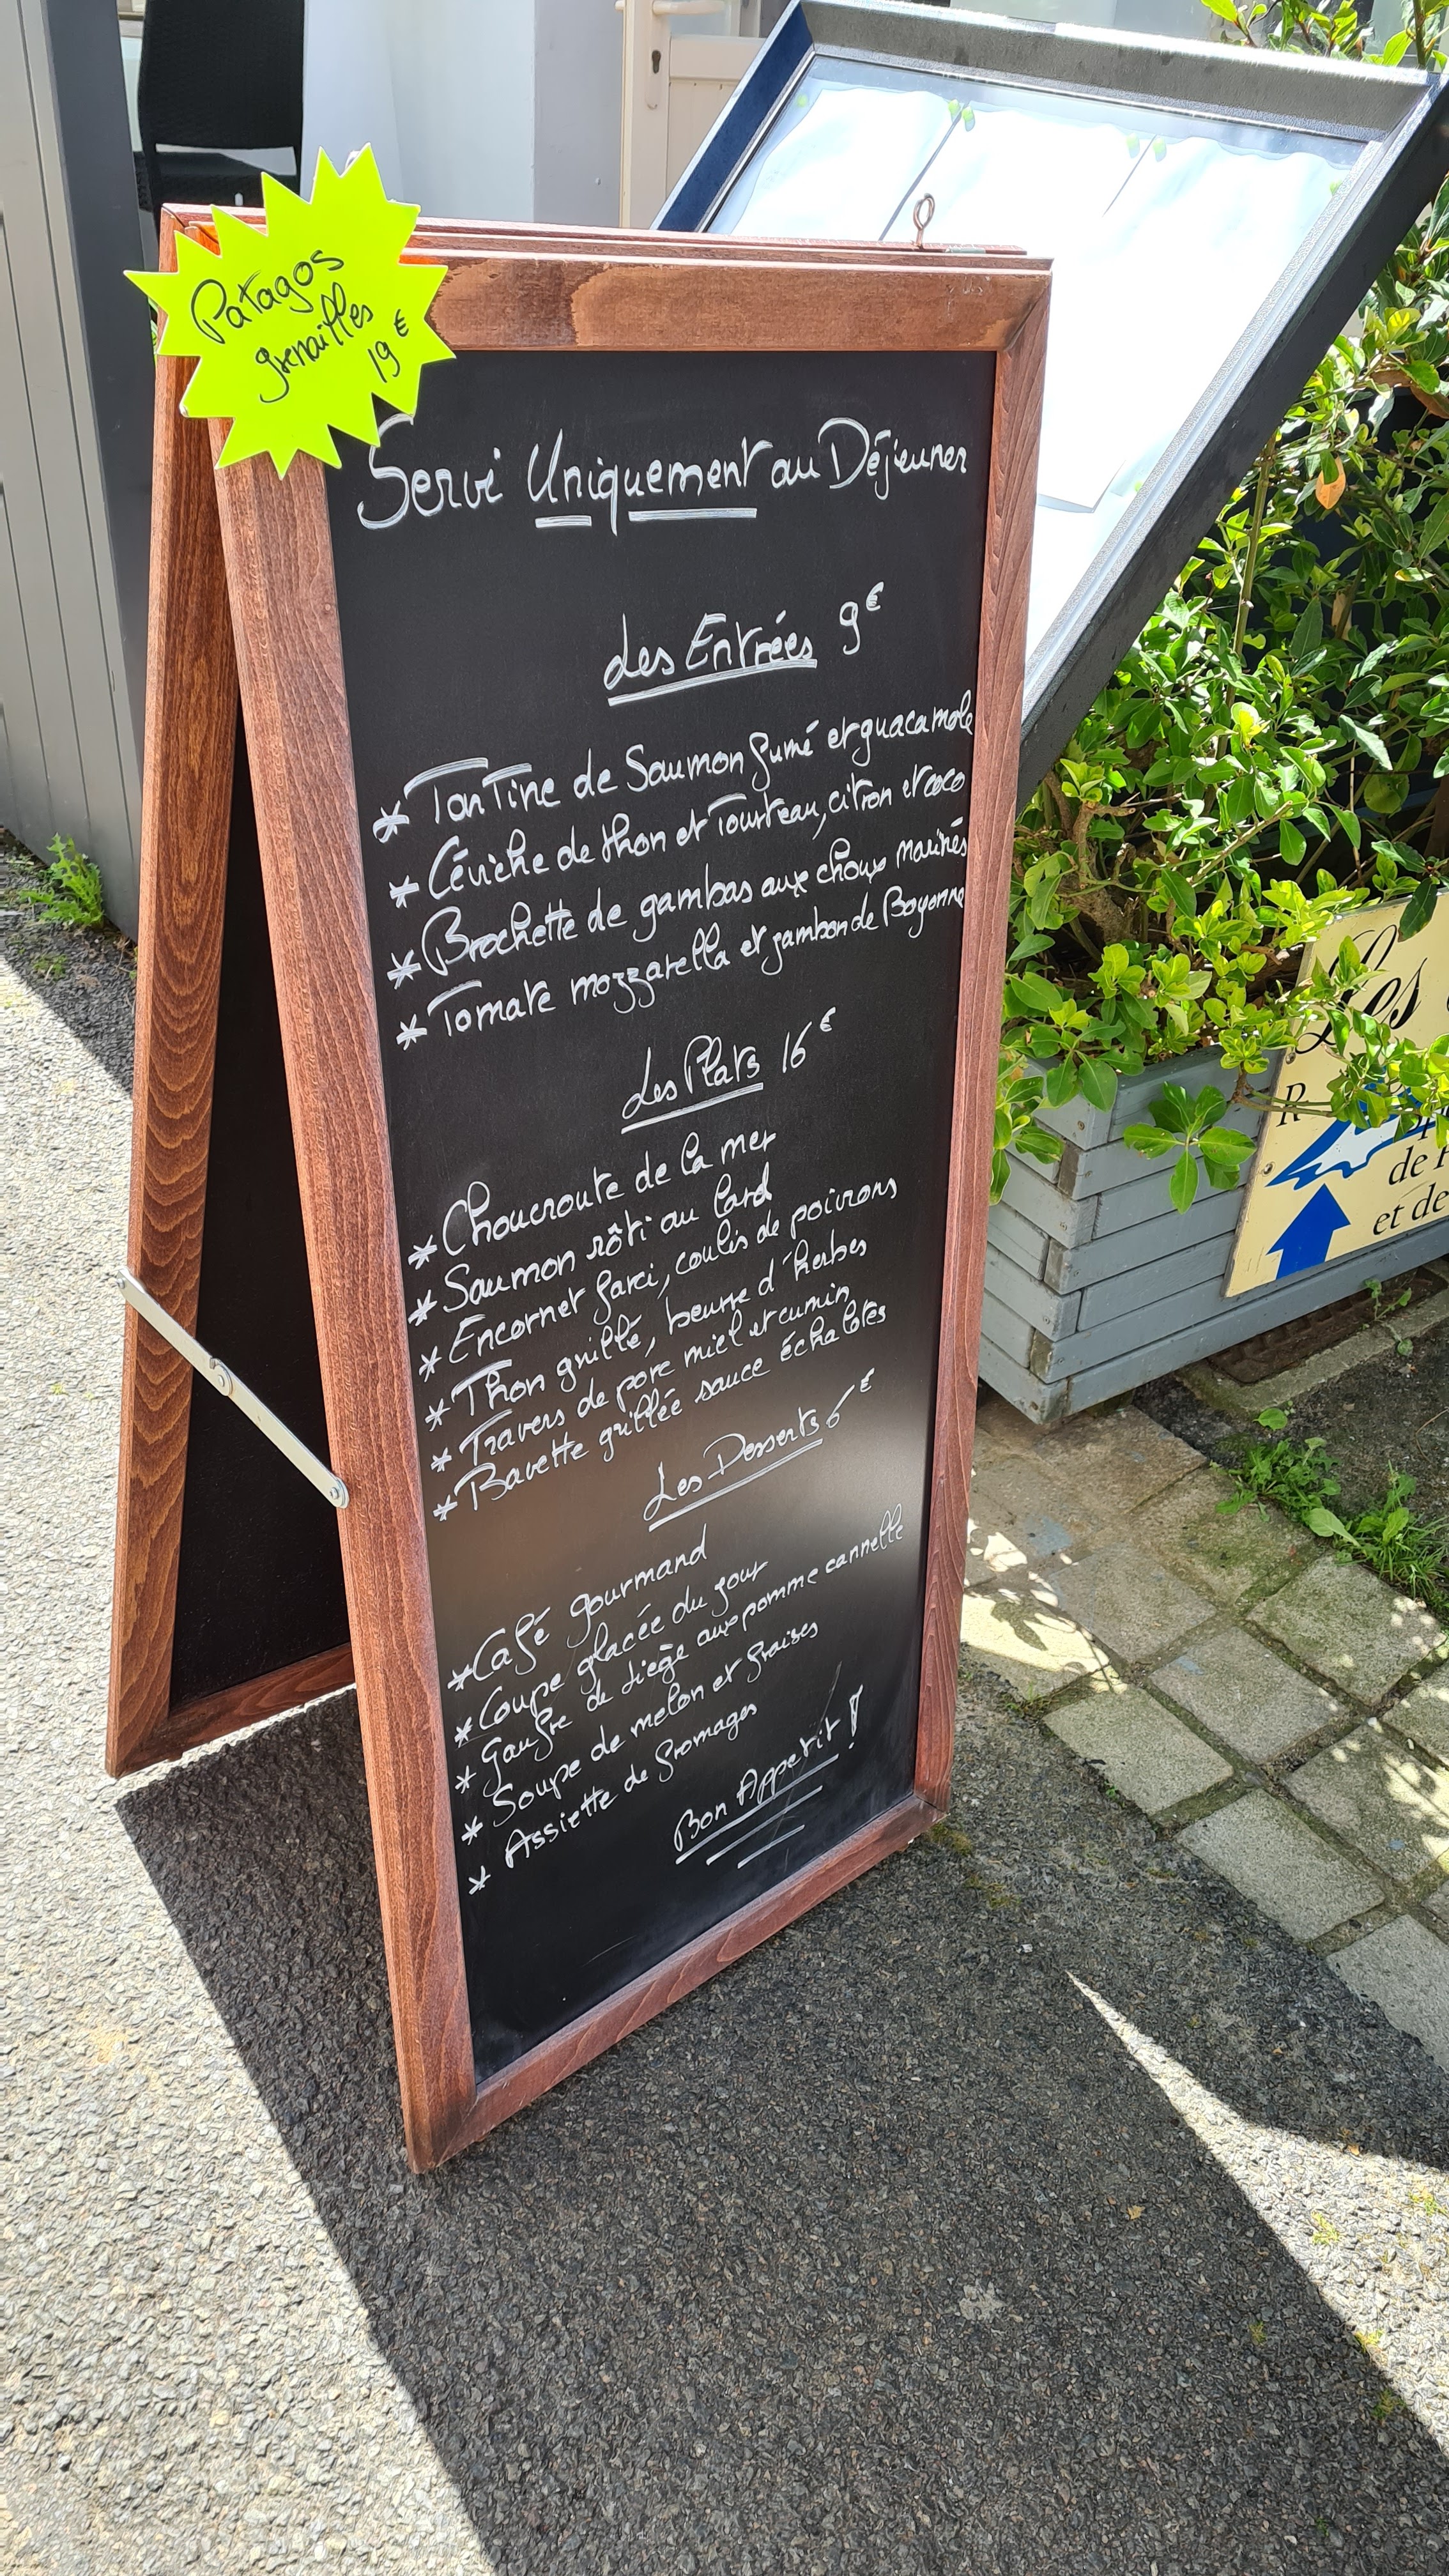 Patagos
grenailles
19€
Servi Uniquement au Déjeuner
Les Entrées 9€
* Tartine de Saumon fumé et guacamole
* Céviche de thon et Tourteau, citron et coco
* Brochette de gambas aux choux marinés
* Tomate mozzarella et jambon de Bayonne
Les Plats 16€
* Choucroute de la mer
* Saumon rôti au lard
* Encornet farci, coulis de poivrons
* Thon grillé, beurre d'herbes
* Travers de porc miel et cumin
* Bavette grillée sauce échalotes
Les Desserts 6€
* Café gourmand
* Coupe glacée du jour
* Gaufre de Liège aux pomme cannelle
* Soupe de melon et fraises
* Assiette de fromages
Bon Appetit !
Les
de
et de